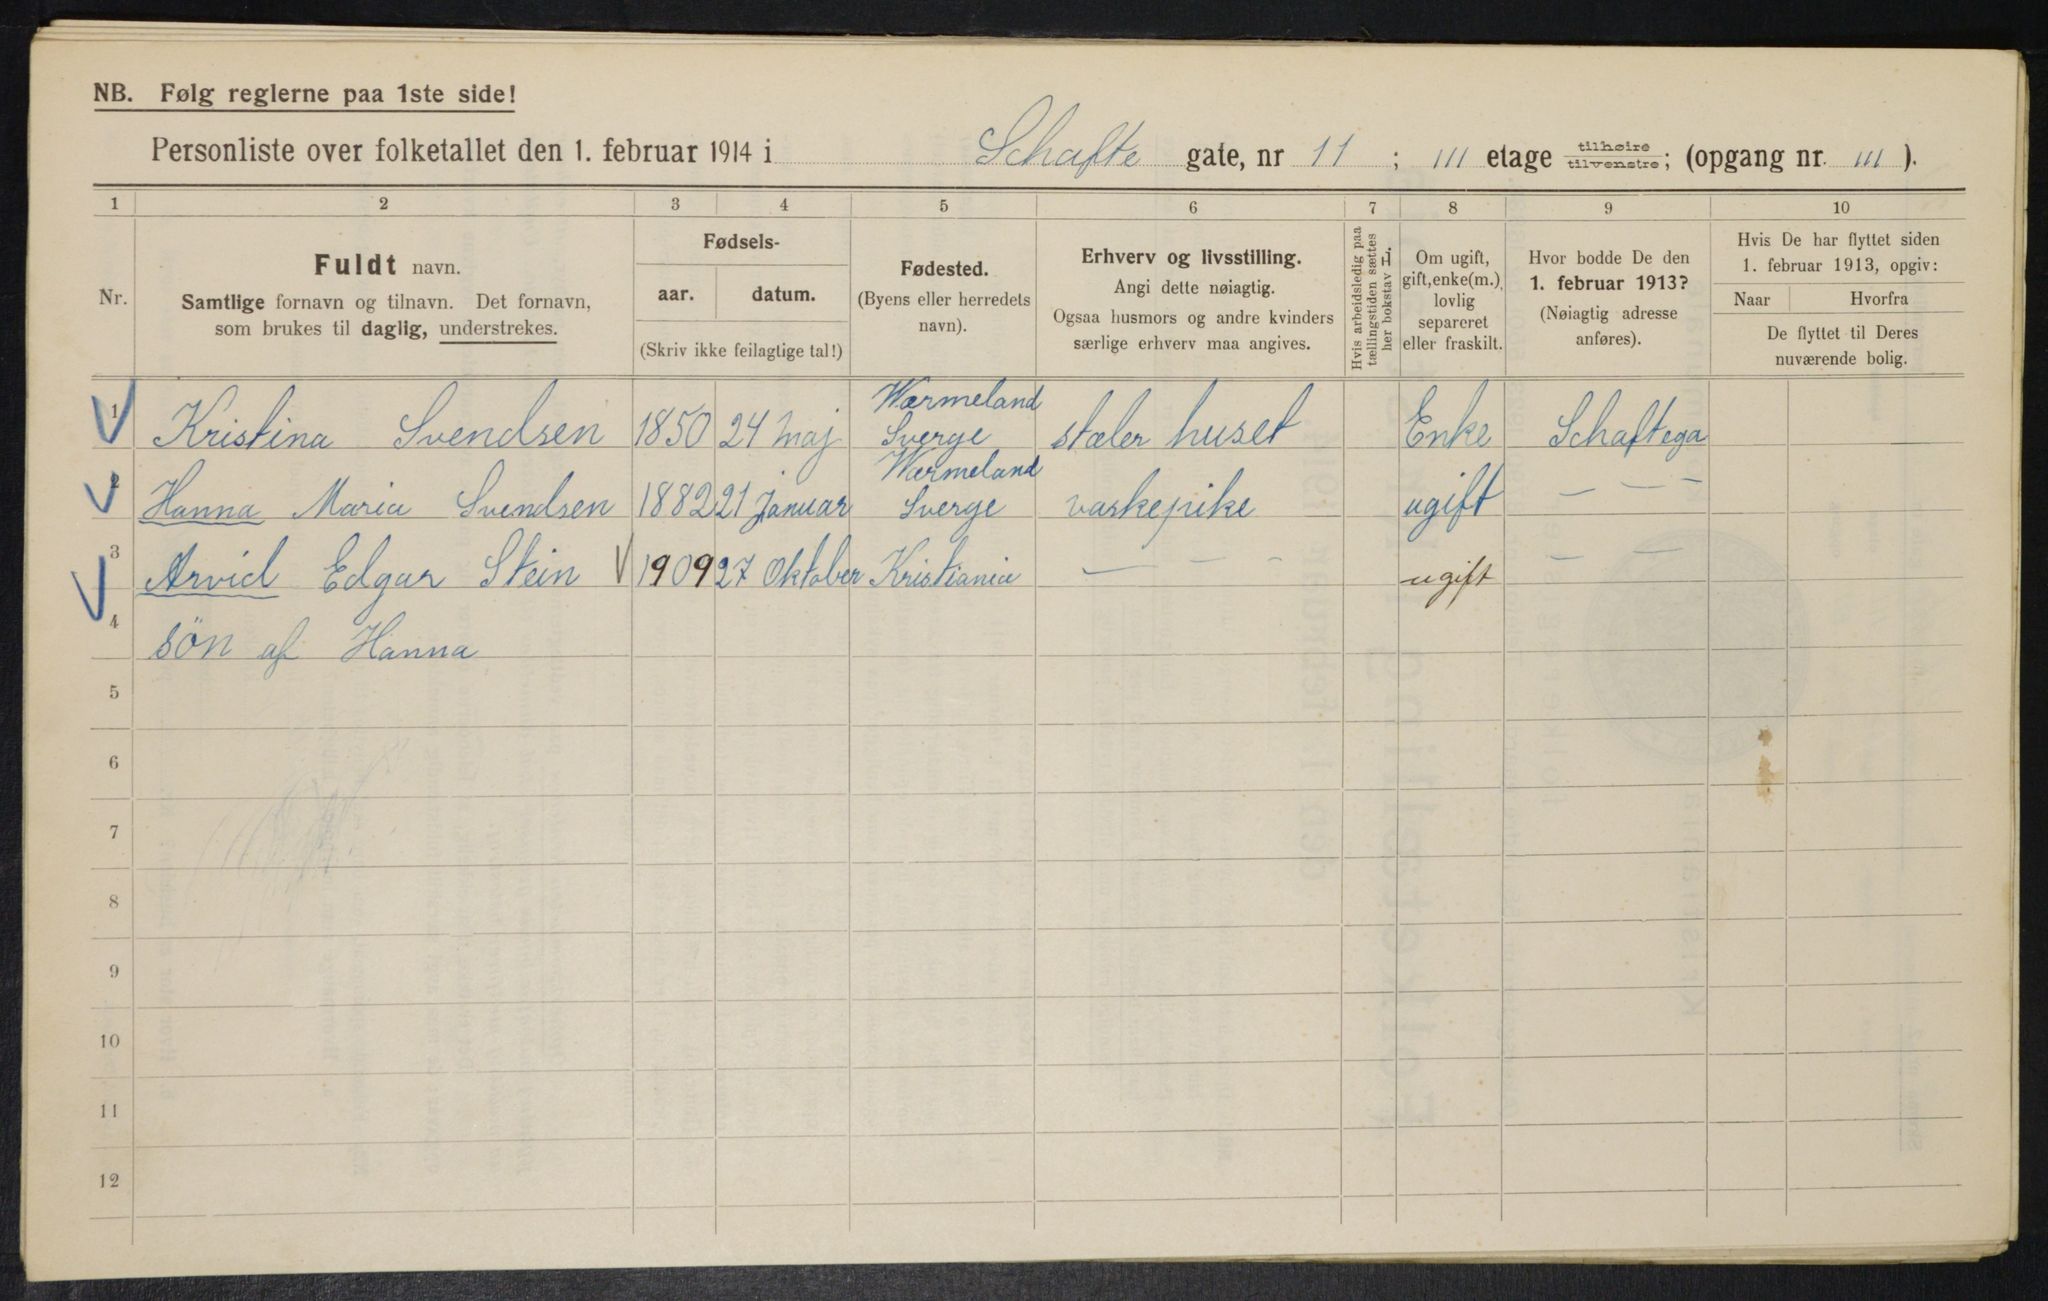 NB. Følg reglerne paa 1ste side!
Personliste over folketallet den 1. februar 1914 i Schafte gate, nr 11 ; III etage tilhøire tilvenstre; (opgang nr. III ).
1 2 3 4 5 6 7 8 9 10
Nr.
Fuldt navn.
Samtlige fornavn og tilnavn. Det fornavn,
som brukes til daglig, understrekes.
Fødsels-
aar. datum.
(Skriv ikke feilagtige tal!)
Fødested.
(Byens eller herredets
navn).
Erhverv og livsstilling.
Angi dette nøiagtig.
Ogsaa husmors og andre kvinders
særlige erhverv maa angives.
Hvis arbeidsledig paa
tællingstiden sættes
her bokstav L.
Om ugift,
gift, enke(m.),
lovlig
separeret
eller fraskilt.
Hvor bodde De den
1. februar 1913?
(Nøiagtig adresse
anføres).
Hvis De har flyttet siden
1. februar 1913, opgiv:
Naar Hvorfra
De flyttet til Deres
nuværende bolig.
1 Kristina Svendsen 1850 24 Maj Wærmeland Sverge stæler huset Enke Schaftega
2 Hanna Maria Svendsen 1882 21 Januar Wærmeland Sverge vaskepike ugift — — —
3 Arvid Edgar Stein 1909 27 Oktober Kristiania — — - ugift — —
4 søn af Hanna
5
6
7
8
9
10
11
12